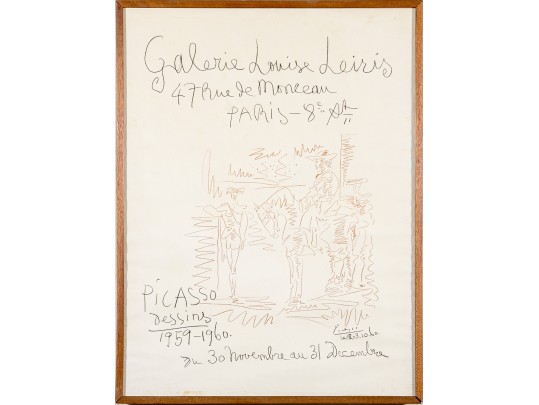 Galerie Louise Leiris
47 Rue de Monceau
PARIS - 8e Art
PICASSO
dessins
1959-1960.
du 30 Novembre au 31 Decembre